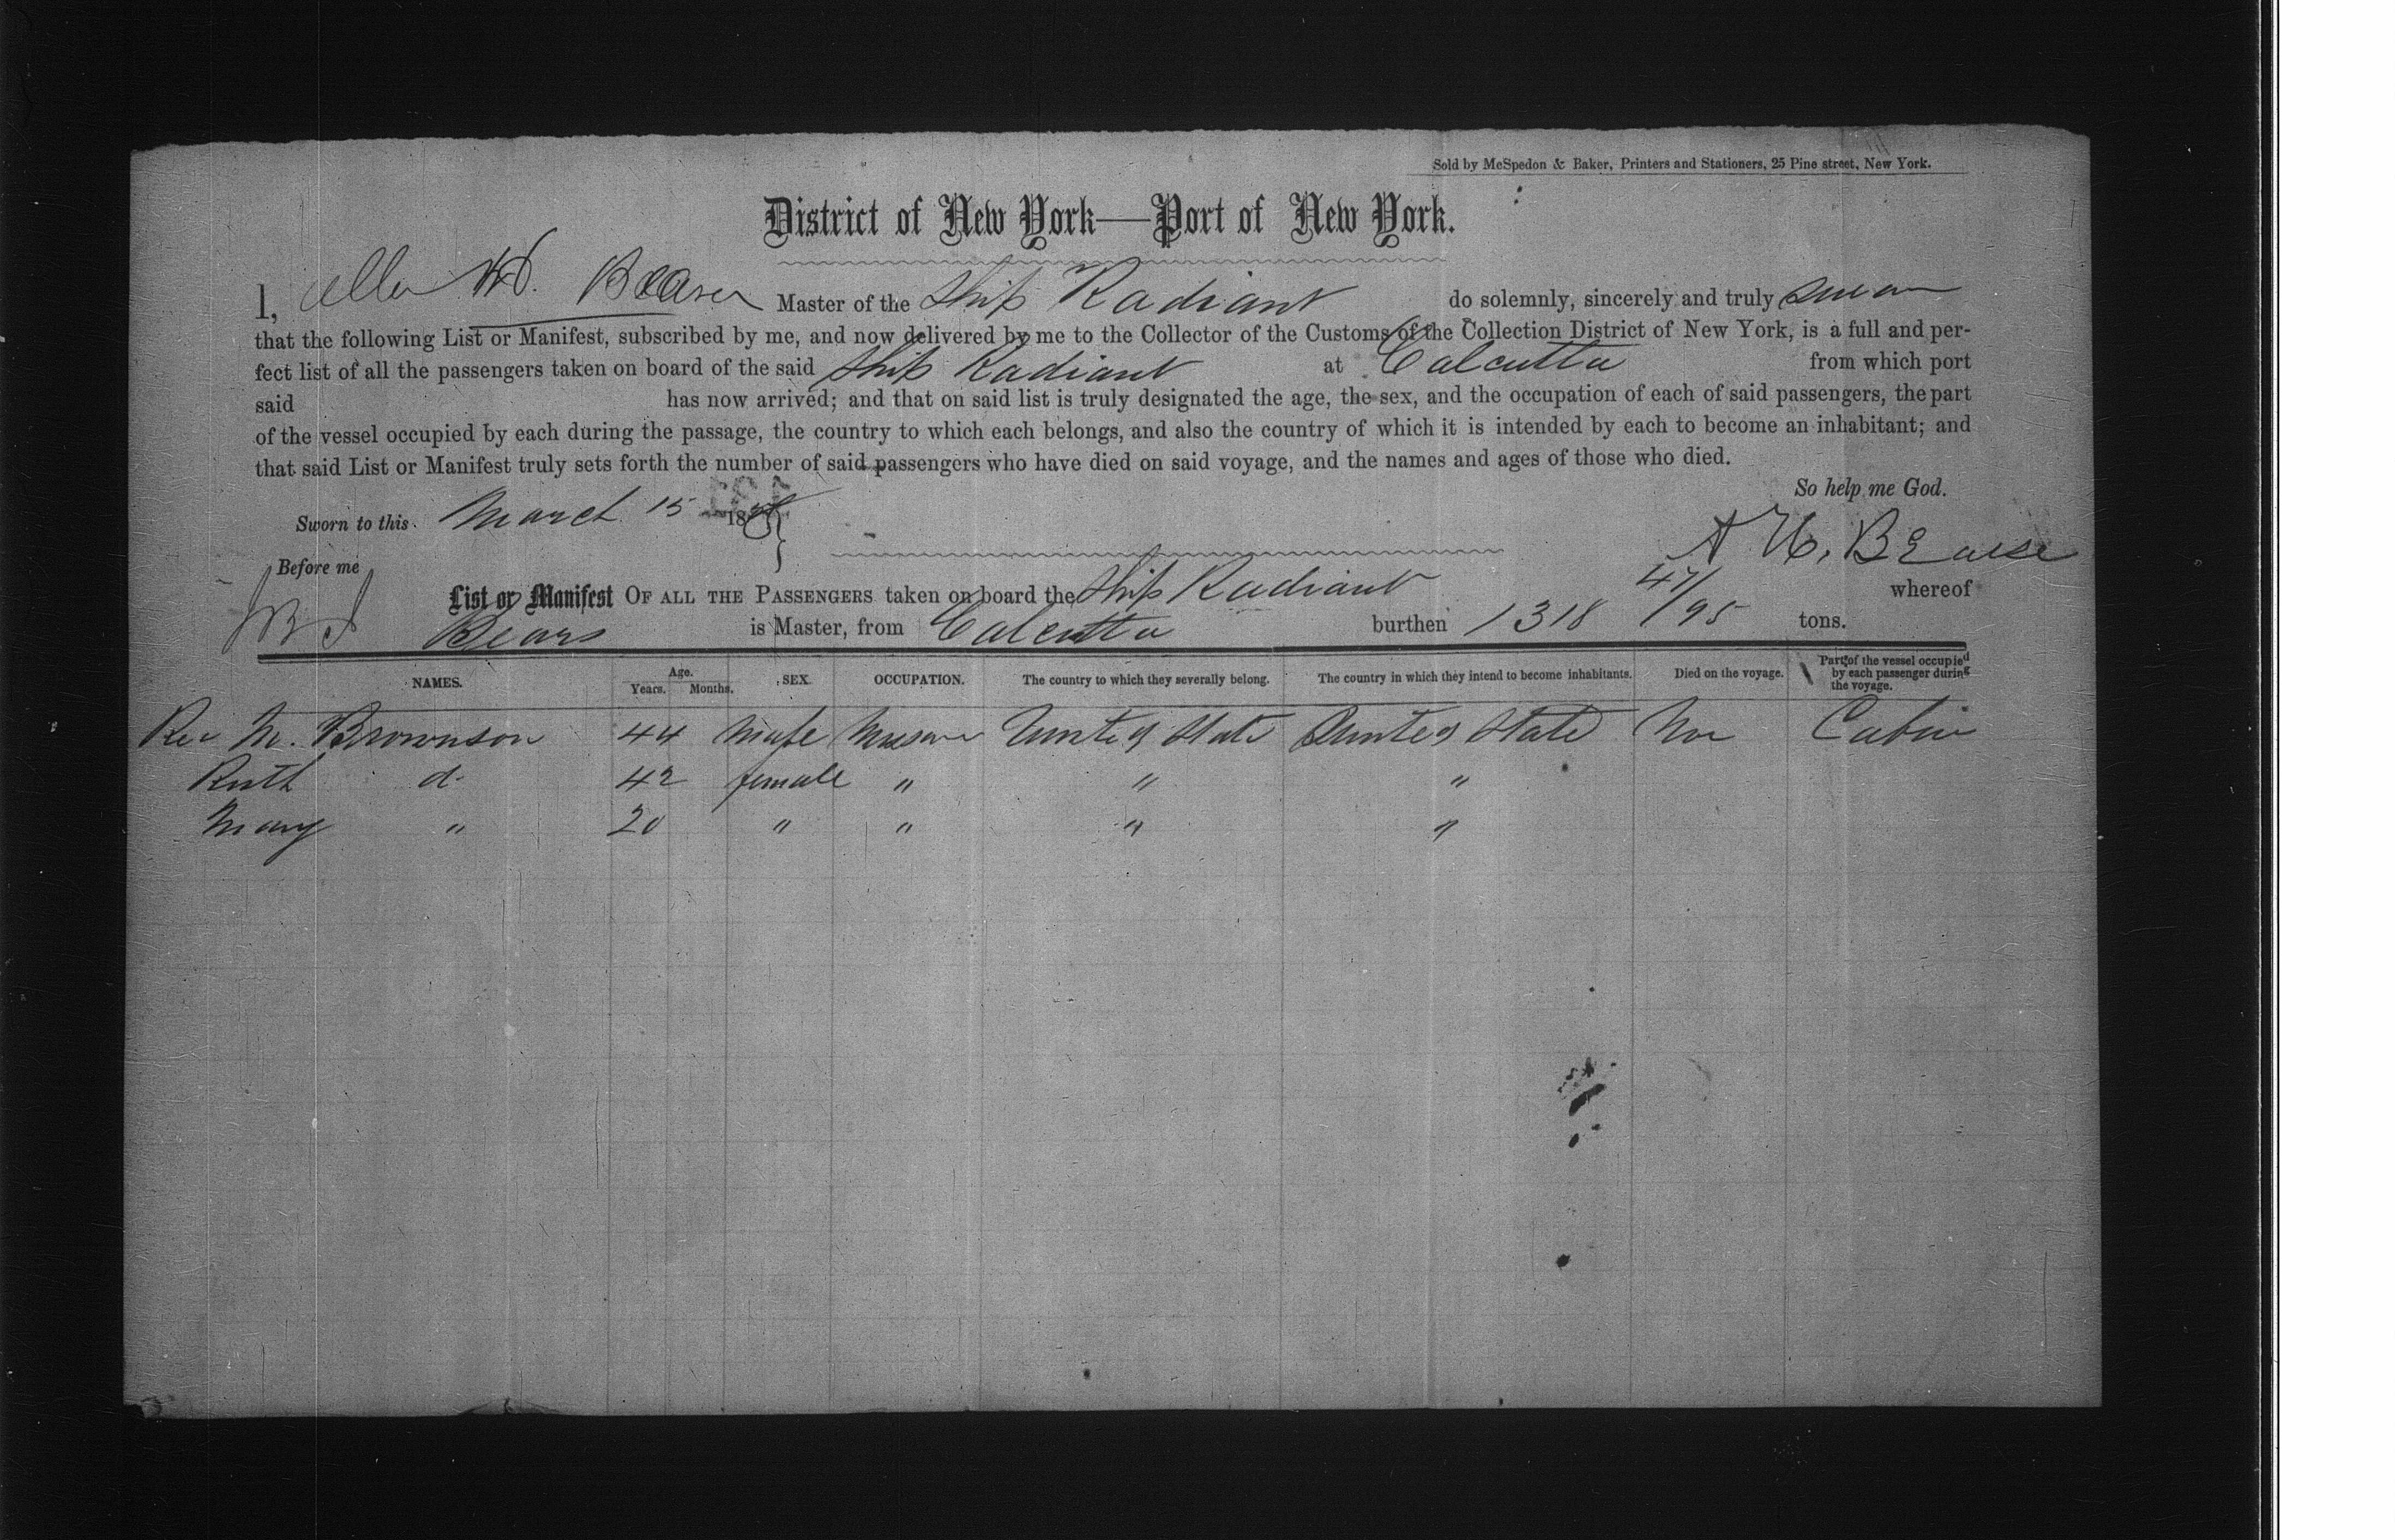 Sold by McSpedon & Baker, Printers and Stationers, 25 Pine street, New York.
District of New York—Port of New York.
I, Allen H. Bearse Master of the Ship Radiant do solemnly, sincerely and truly swear
that the following List or Manifest, subscribed by me, and now delivered by me to the Collector of the Customs of the Collection District of New York, is a full and per-
fect list of all the passengers taken on board of the said Ship Radiant at Calcutta from which port
said has now arrived; and that on said list is truly designated the age, the sex, and the occupation of each of said passengers, the part
of the vessel occupied by each during the passage, the country to which each belongs, and also the country of which it is intended by each to become an inhabitant; and
that said List or Manifest truly sets forth the number of said passengers who have died on said voyage, and the names and ages of those who died.
So help me God.
Sworn to this March 15 18
A H. Bearse
Before me
List or Manifest OF ALL THE PASSENGERS taken on board the Ship Radiant whereof
Bears is Master, from Calcutta burthen 1318 47/95 tons.
NAMES. Age. Years. Months. SEX. OCCUPATION. The country to which they severally belong. The country in which they intend to become inhabitants. Died on the voyage. Part of the vessel occupied by each passenger during the voyage.
Rev N. Brownson 44 Male United State United State Non Cabin
Ruth do 42 female " " "
Mary " 20 " " " "